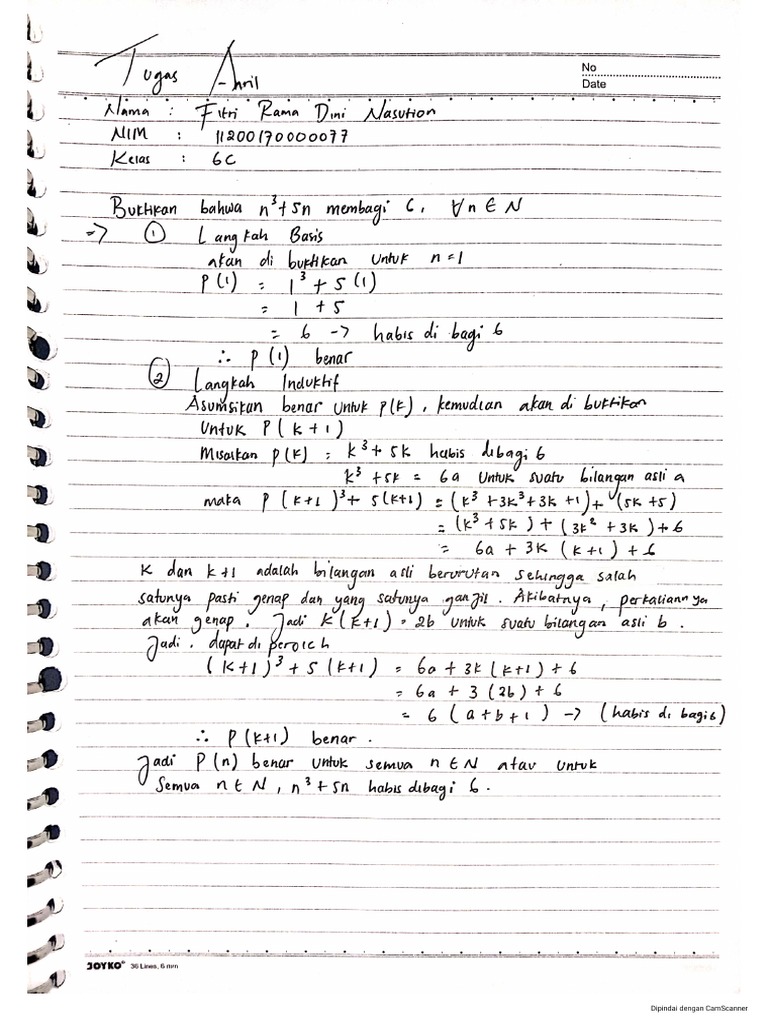 Tugas Ahril
No
Date
Nama : Fitri Rama Dini Nasution
NIM : 11200170000077
Kelas : 6C
Buktikan bahwa n³+5n membagi 6, ∀n ∈ N
=> ① Langkah Basis
akan di buktikan untuk n=1
P(1) = 1³ + 5(1)
= 1 + 5
= 6 -> habis di bagi 6
∴ P(1) benar
② Langkah Induktif
Asumsikan benar untuk P(k), kemudian akan di buktikan
Untuk P(k+1)
Misalkan P(k) = k³ + 5k habis dibagi 6
k³ + 5k = 6a untuk suatu bilangan asli a
maka P(k+1)³ + 5(k+1) = (k³ + 3k³ + 3k + 1) + (5k + 5)
= (k³ + 5k) + (3k² + 3k) + 6
= 6a + 3k (k+1) + 6
K dan k+1 adalah bilangan asli berurutan sehingga salah
satunya pasti genap dan yang satunya ganjil. Akibatnya, perkaliannya
akan genap. Jadi k(k+1) = 2b untuk suatu bilangan asli b.
Jadi, dapat di peroleh
(k+1)³ + 5(k+1) = 6a + 3k (k+1) + 6
= 6a + 3(2b) + 6
= 6(a+b+1) -> (habis di bagi 6)
∴ P(k+1) benar.
Jadi P(n) benar untuk semua n ∈ N atau untuk
Semua n ∈ N, n³ + 5n habis dibagi 6.
JOYKO® 36 Lines, 6 mm
Dipindai dengan CamScanner